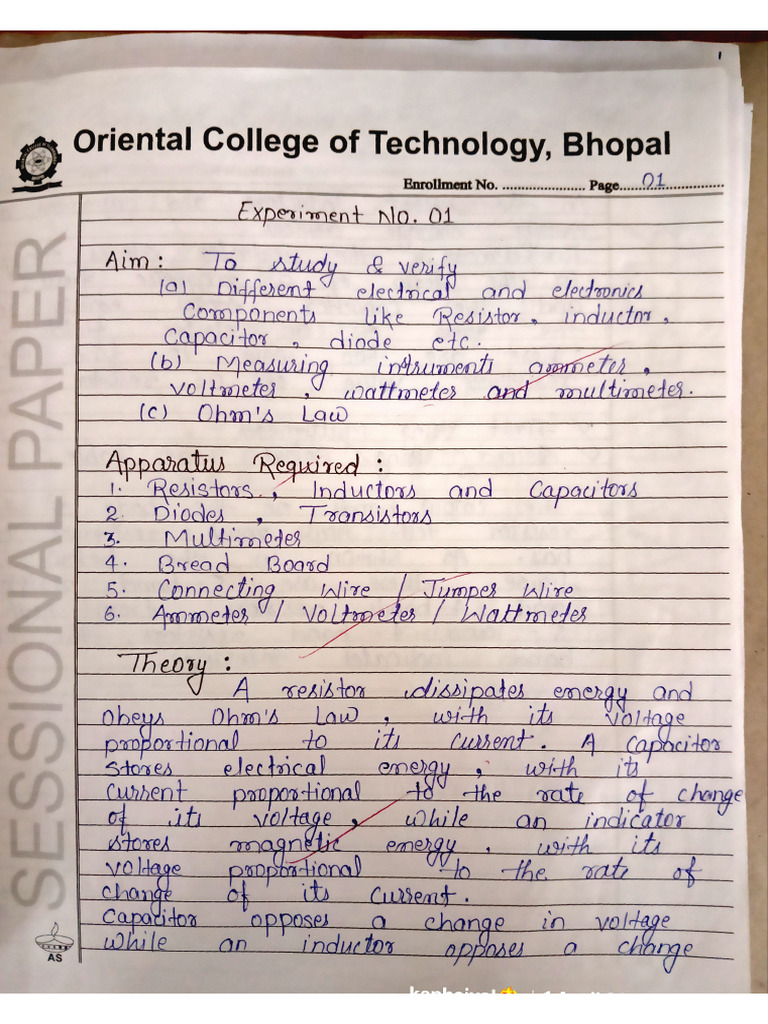 1
Oriental College of Technology, Bhopal
Enrollment No. ........................ Page......01.................
Experiment No. 01
Aim : To study & verify
(a) Different electrical and electronics
Components like Resistor, inductor,
Capacitor, diode etc.
(b) Measuring instruments ammeter,
voltmeter, wattmeter and multimeter.
(c) Ohm's Law
Apparatus Required :
1. Resistors, Inductors and Capacitors
2. Diodes, Transistors
3. Multimeter
4. Bread Board
5. Connecting Wire / Jumper Wire
6. Ammeter / Voltmeter / Wattmeter
Theory :
A resistor dissipates energy and
obeys Ohm's Law, with its voltage
proportional to its current. A capacitor
stores electrical energy, with its
current proportional to the rate of change
of its voltage, while an indicator
stores magnetic energy, with its
voltage proportional to the rate of
change of its current.
Capacitor opposes a change in voltage
while an inductor opposes a change
SESSIONAL PAPER
AS